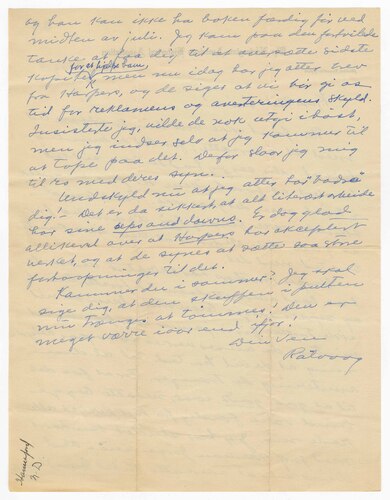 og han kan ikke ha boken færdig før ved
midten av juli. Jeg kom paa den fortvilede
tanke at faa dig til at oversætte sidste
for at hjelpe ham,
kapitel, men nu idag har jeg atter brev
fra Harpers, og de siger at vi bør gi os
tid for reklamens og averteringens skyld.
Insisterte jeg, vilde de nok utgi i høst,
men jeg indser selv at jeg kommer til
at tape paa det. Derfor slaar jeg mig
til ro med deres syn.
Undskyld nu at jeg atter har
dig! - Det er da sikkert, at alt literært arbeide
har sine ups and downs. Er dog glad
allikevel over at Harpers har akceptert
verket, og at de synes at sætte saa store
forhaapninger til det.
Kommer du i sommer? Jeg skal
sige dig, at den skuffen i pulten
min trænger at tømmes! Den er
meget værre iaar end ifjor!
Din ven
Rølvaag
Hannaford
N.D.